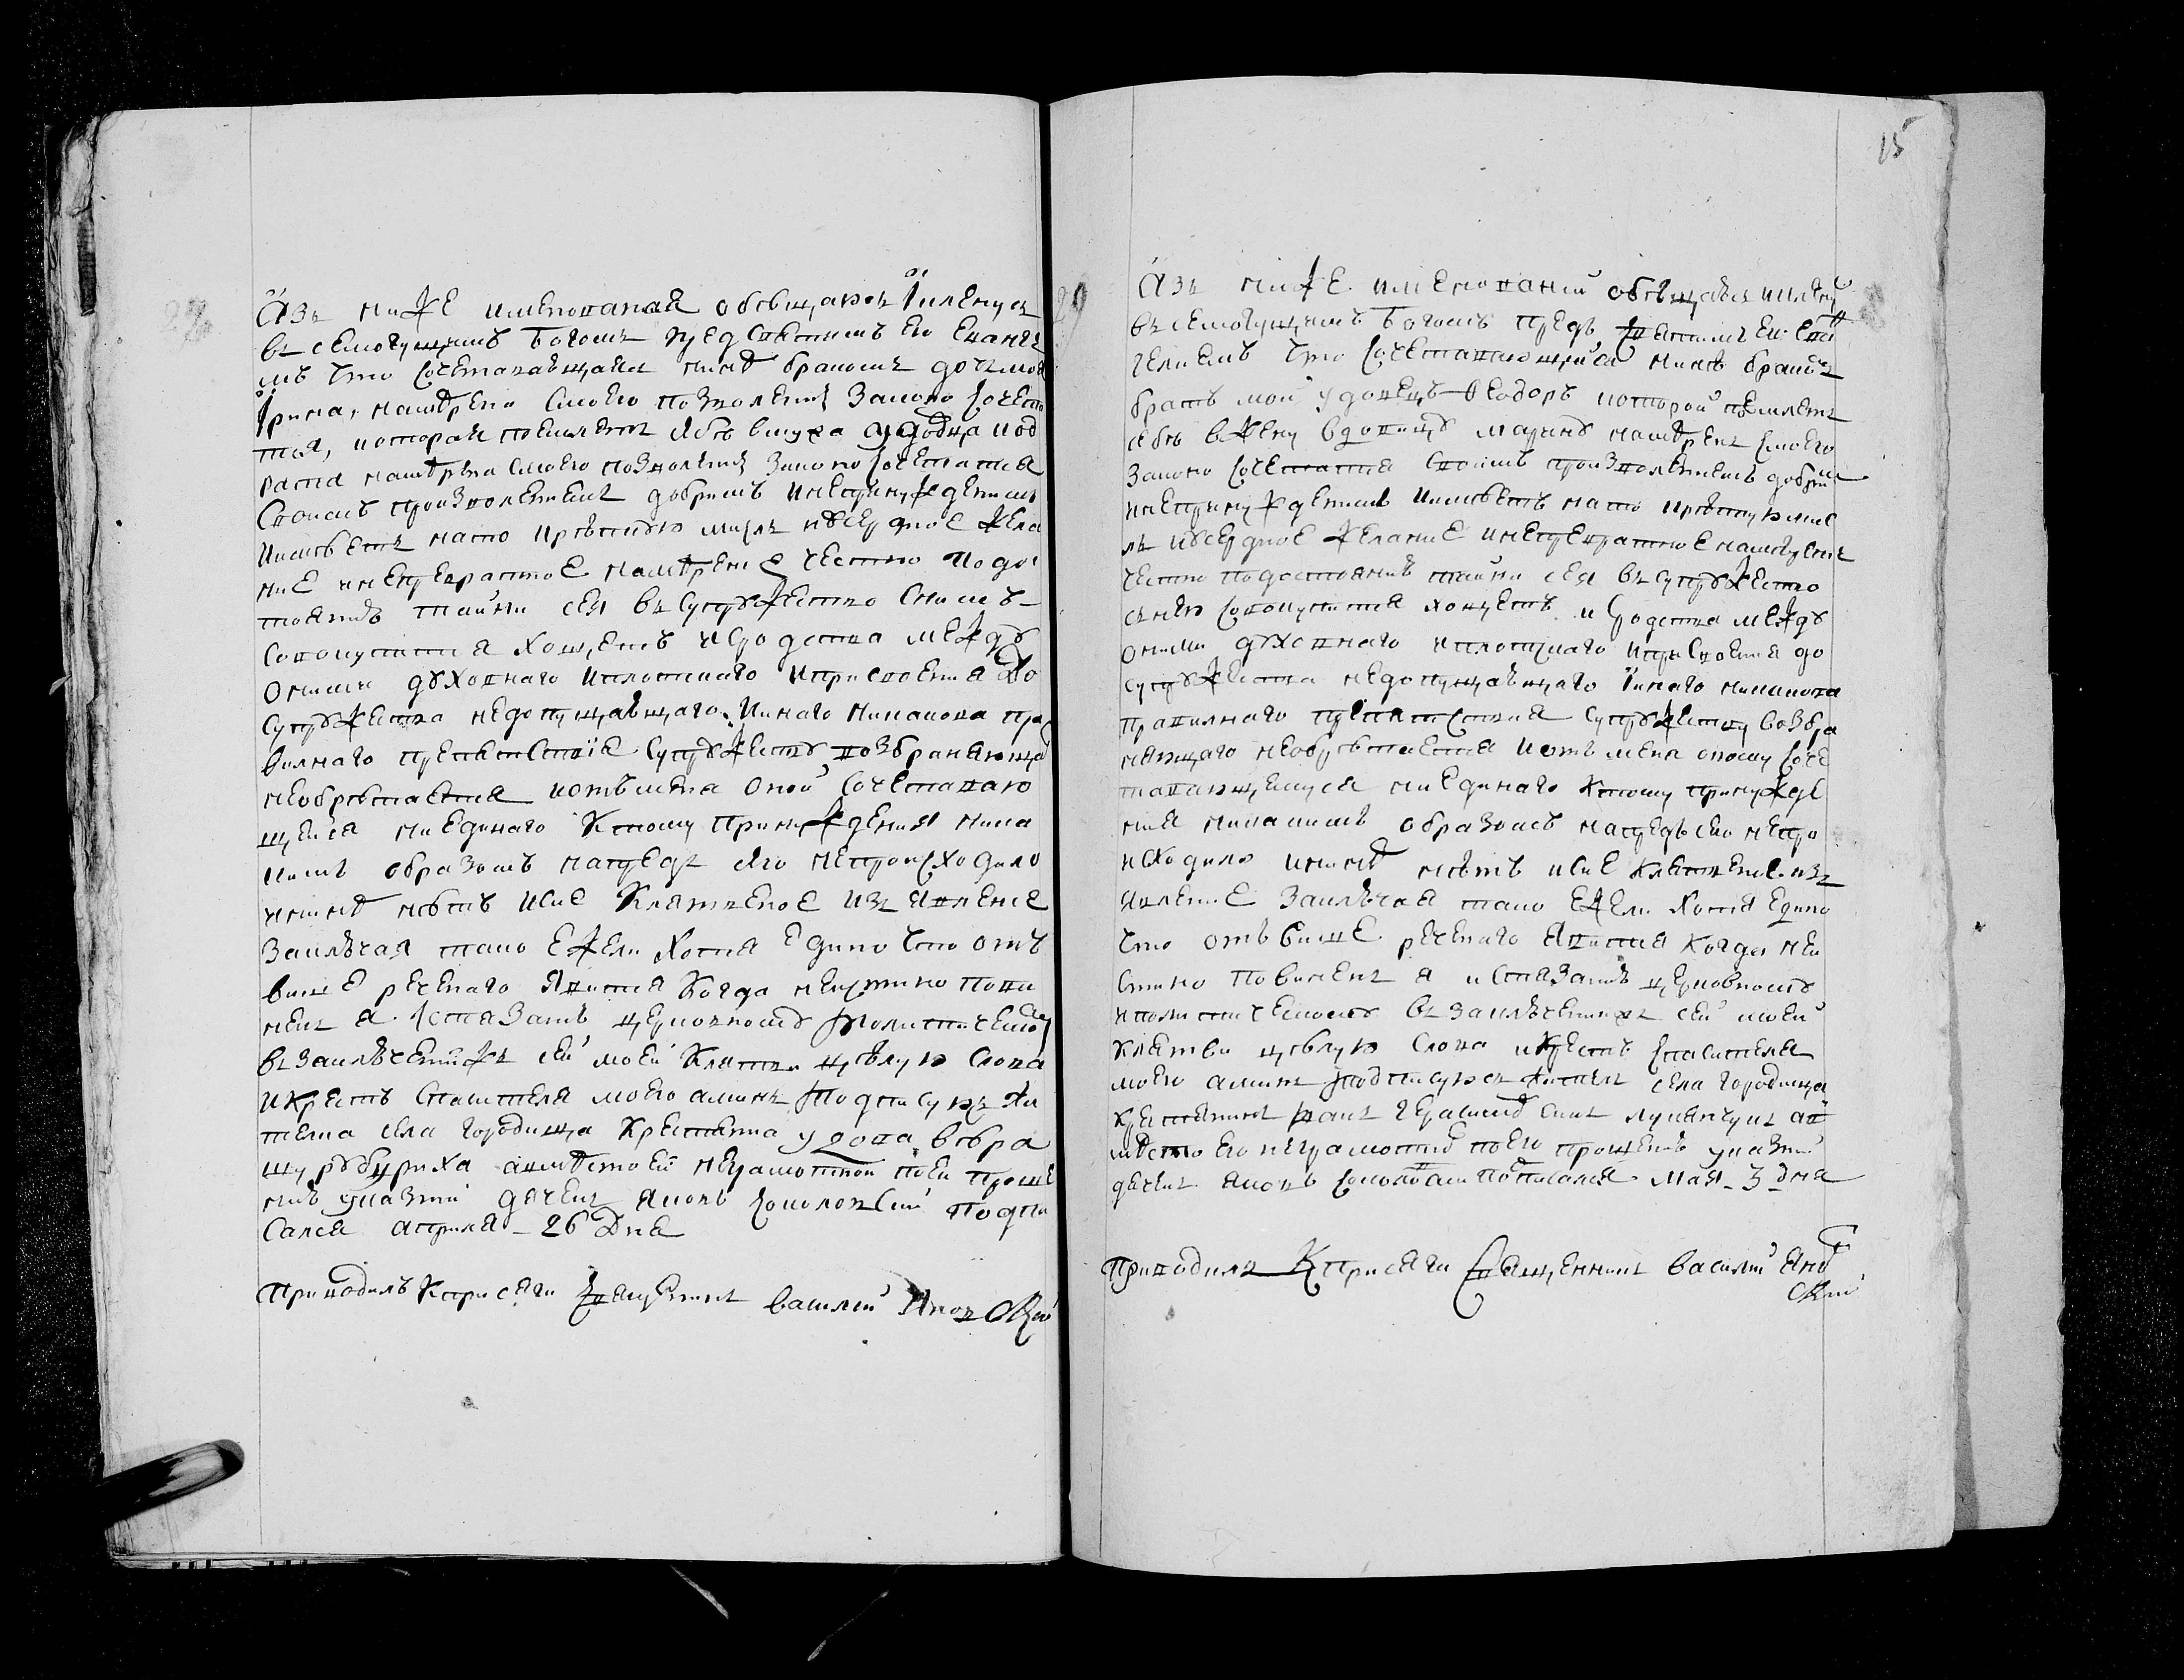 28
Азъ ниже именованая обѣщаюсь и кленуся
всемогущимъ Богомъ предъ святимъ его еванге
мъ что сочетаваящаяся нинѣ бракомъ дочъ моя
Ірина, намѣрена смоего позволения законо сочета
тися, которая поемлетъ себѣ вмужа удовца Код
рата намѣрена смоего позволения законо сочетатися
своимъ произволениемъ добримъ и непринужденимъ
и имѣетъ на то крѣпкую мислъ и усердное жела
ние и непревратное намѣрение честно по до
тоянию тайни сея всупружество снимъ
совокупитися хощетъ и сродства между
оними духовнаго и плотнаго и присвоения до
супружества недопущаящаго и инаго никакова пра
вилнаго препятствия супружеству возбраняюща
необрѣтается и отъ мене оной сочетаваю
щейся ни единаго ктому принуждения ника
кимъ образомъ напредъ сего непроисходило
и нинѣ нѣтъ и сие клятвеное изъявление
заключая тако ежели хотя едино что отъ
више реченаго явится когда неистино пови
ненъ я истязанию церковному и политическому
взаключение жъ сей моей клятви цѣлую слова
и крестъ спасителя моего аминь подписуюсь жи
телка села городища крестянка удова
а вмѣсто ей неграмотной по ей проше
нию указний дячекъ яковъ соколовский подпи
сался априля 26 дня
Приводилъ к присяги священикъ василий Яновский
15
29
Азъ ниже именований обѣщаюсь и кленус
всемогущимъ Богомъ предъ святимъ его еван
гелиемъ что сочетавающийся нинѣ бракомъ
братъ мой удовецъ Феодоръ которой поемлетъ
себѣ вжену вдовицу марину намѣренъ смоего
законо сочетатися своимъ произволениемъ добрим
и непринужденимъ и имѣетъ на то крѣпкую мис
лъ и усердное желание и непревратное намѣрение
честно по достоянию тайни сея всупружество
снею совокупитися хощетъ и сродства между
оними духовнаго и плотнаго и присвоения до
супружества недопущаящаго и инаго никакова
правилнаго препятствия супружеству возбра
няющаго необрѣтается и отъ мене оному соче
тавающемуся ни единаго ктому принужде
ния никакимъ образомъ напредъ сего непро
исходило и нинѣ нѣтъ и сие клятвеное изъ
явление заключая тако ежели хотя едино
что отъ више реченаго явится когда неи
стино повиненъ я истязанию церковному
и политическому взаключение жъ сей моей
клятви цѣлую слова и крестъ спасителя
моего аминь подписуюсь житель села городища
крестянинъ герасимъ синъ а в
мѣсто его неграмотного по его прошению указний
дячекъ яковъ соколовский подписался мая 3 дня
Приводилъ к присяги священникъ василий Янов
ский